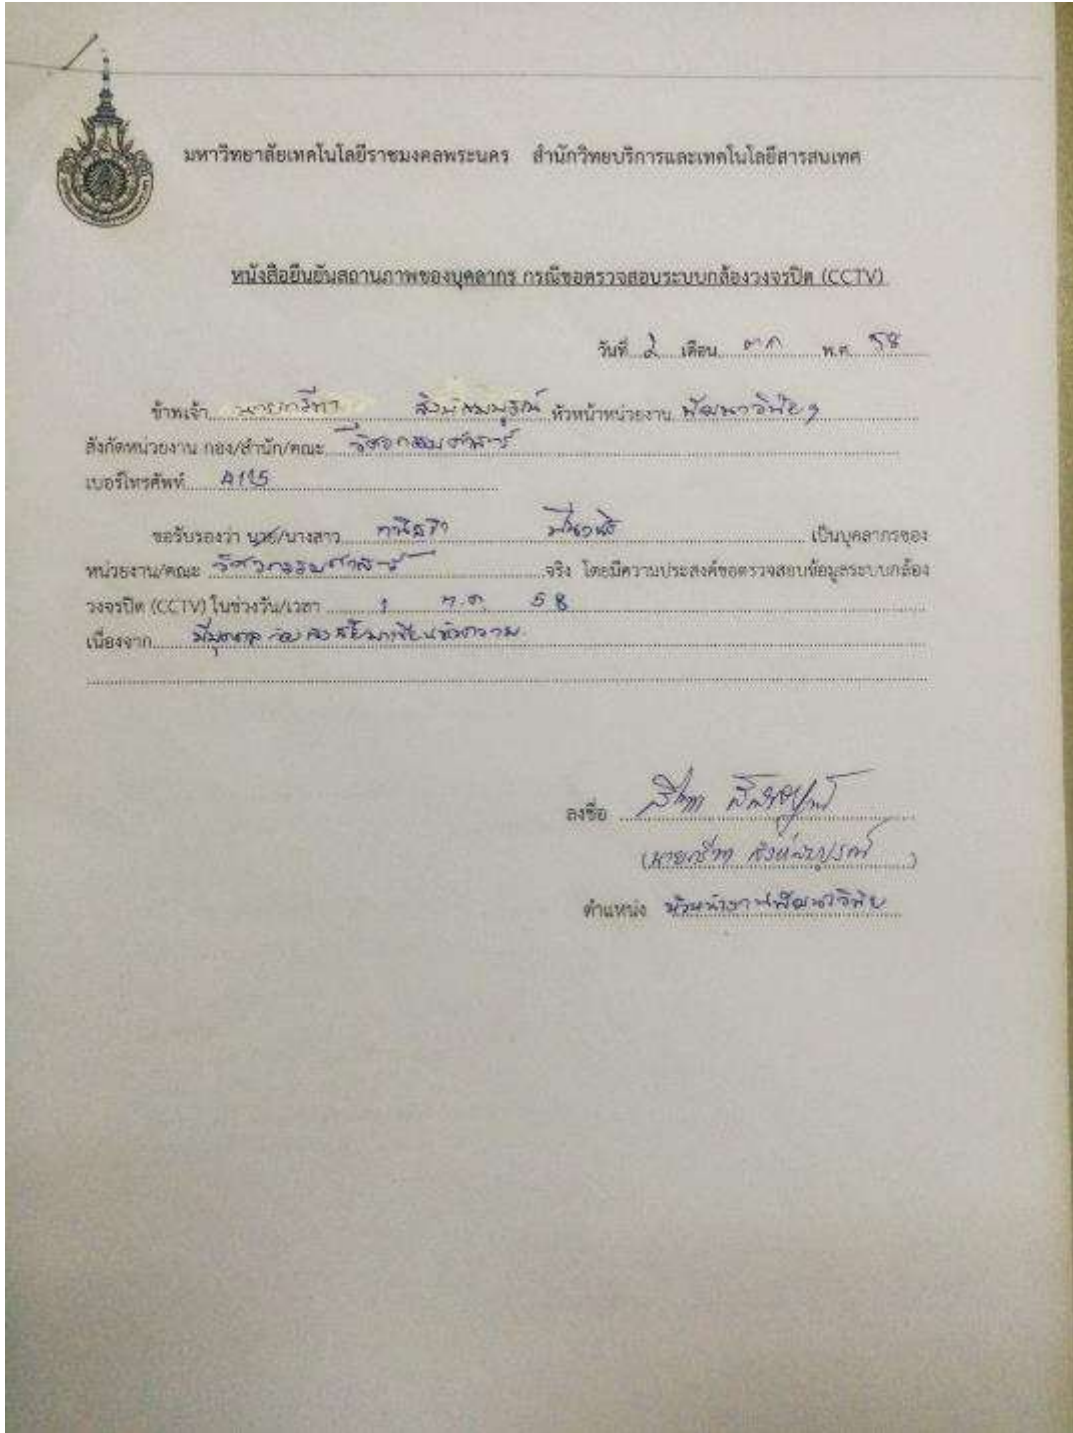 มหาวิทยาลัยเทคโนโลยีราชมงคลพระนคร สำนักวิทยบริการและเทคโนโลยีสารสนเทศ
หนังสือยืนยันสถานภาพของบุคลากร กรณีขอตรวจสอบระบบกล้องวงจรปิด (CCTV)
วันที่ 2 เดือน ต.ค. พ.ศ. 58
ข้าพเจ้า หัวหน้าหน่วยงาน
สังกัดหน่วยงาน กอง/สำนัก/คณะ วิศวกรรมศาสตร์
เบอร์โทรศัพท์ 4125
ขอรับรองว่า นาย/นางสาว เป็นบุคลากรของ
หน่วยงาน/คณะ วิศวกรรมศาสตร์ จริง โดยมีความประสงค์ขอตรวจสอบข้อมูลระบบกล้อง
วงจรปิด (CCTV) ในช่วงวัน/เวลา 1 ต.ค. 58
เนื่องจาก มีบุคคลต้องสงสัยมาเขียนข้อความ
ลงชื่อ
ตำแหน่ง หัวหน้างานพัฒนาวินัย